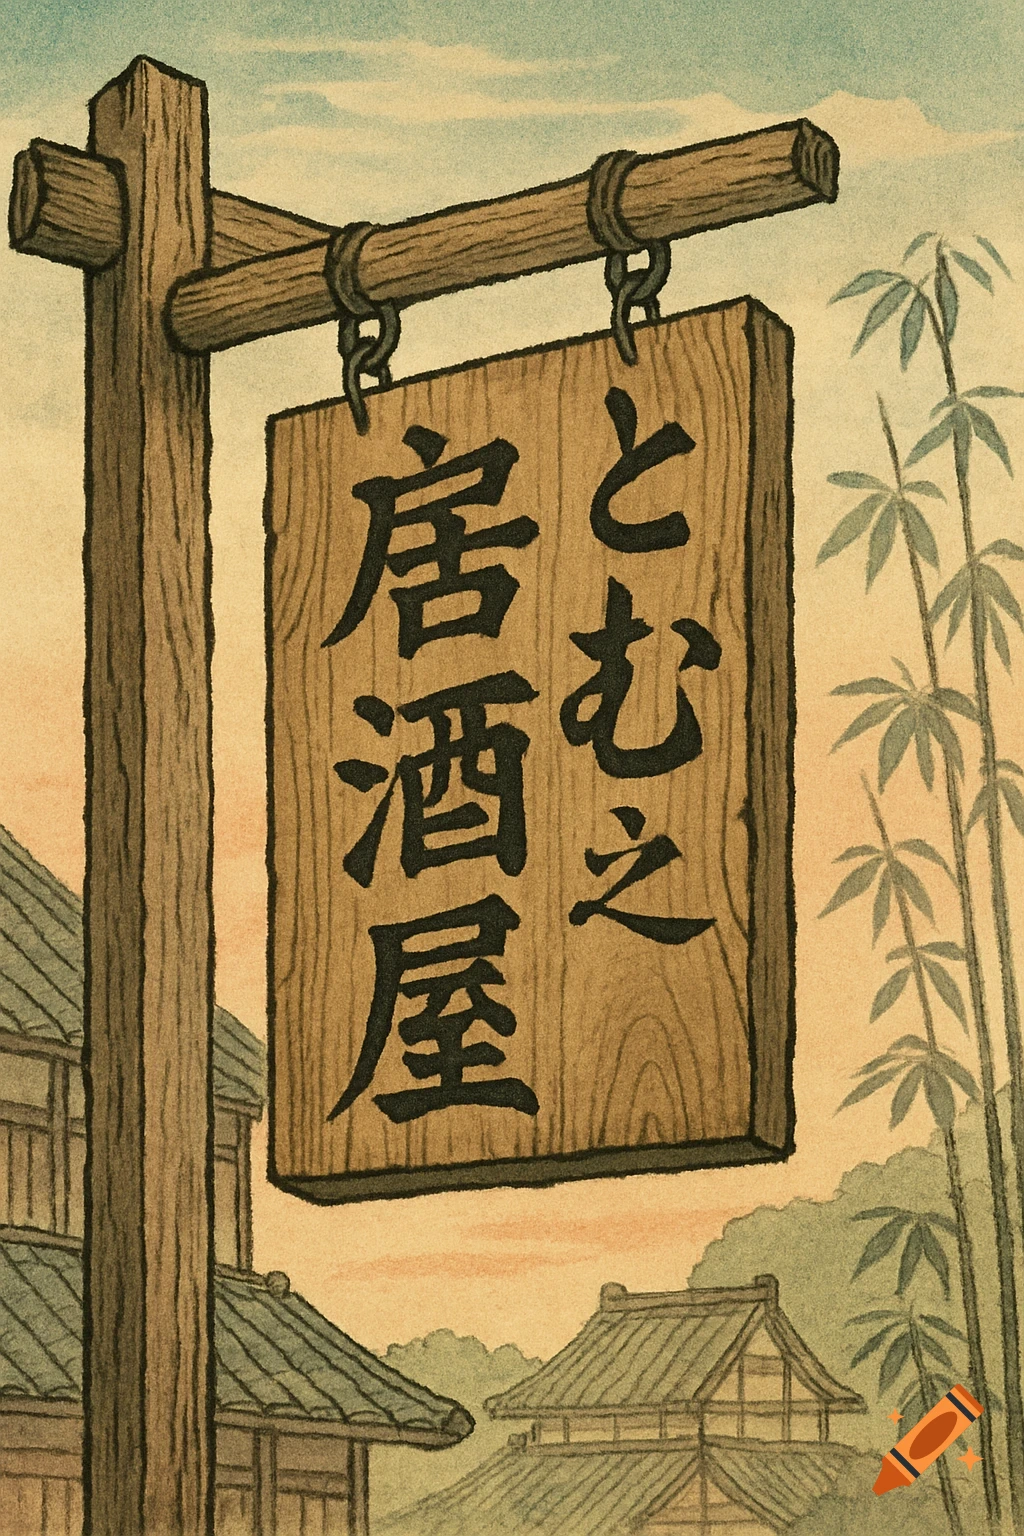 とむ之
居酒屋